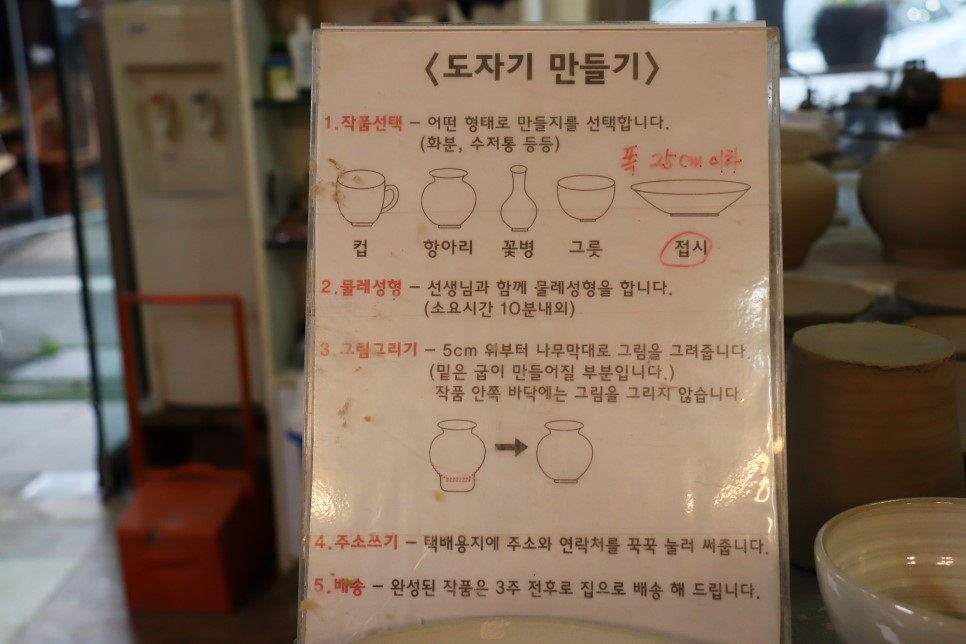 <도자기 만들기>
1.작품선택 – 어떤 형태로 만들지를 선택합니다.
(화분, 수저통 등등)
폭 25cm 이하
컵 항아리 꽃병 그릇 접시
2.물레성형 – 선생님과 함께 물레성형을 합니다.
(소요시간 10분내외)
3.그림그리기 – 5cm 위부터 나무막대로 그림을 그려줍니다.
(밑은 굽이 만들어질 부분입니다.)
작품 안쪽 바닥에는 그림을 그리지 않습니다
4.주소쓰기 – 택배용지에 주소와 연락처를 꾹꾹 눌러 써줍니다.
5.배송 – 완성된 작품은 3주 전후로 집으로 배송 해 드립니다.